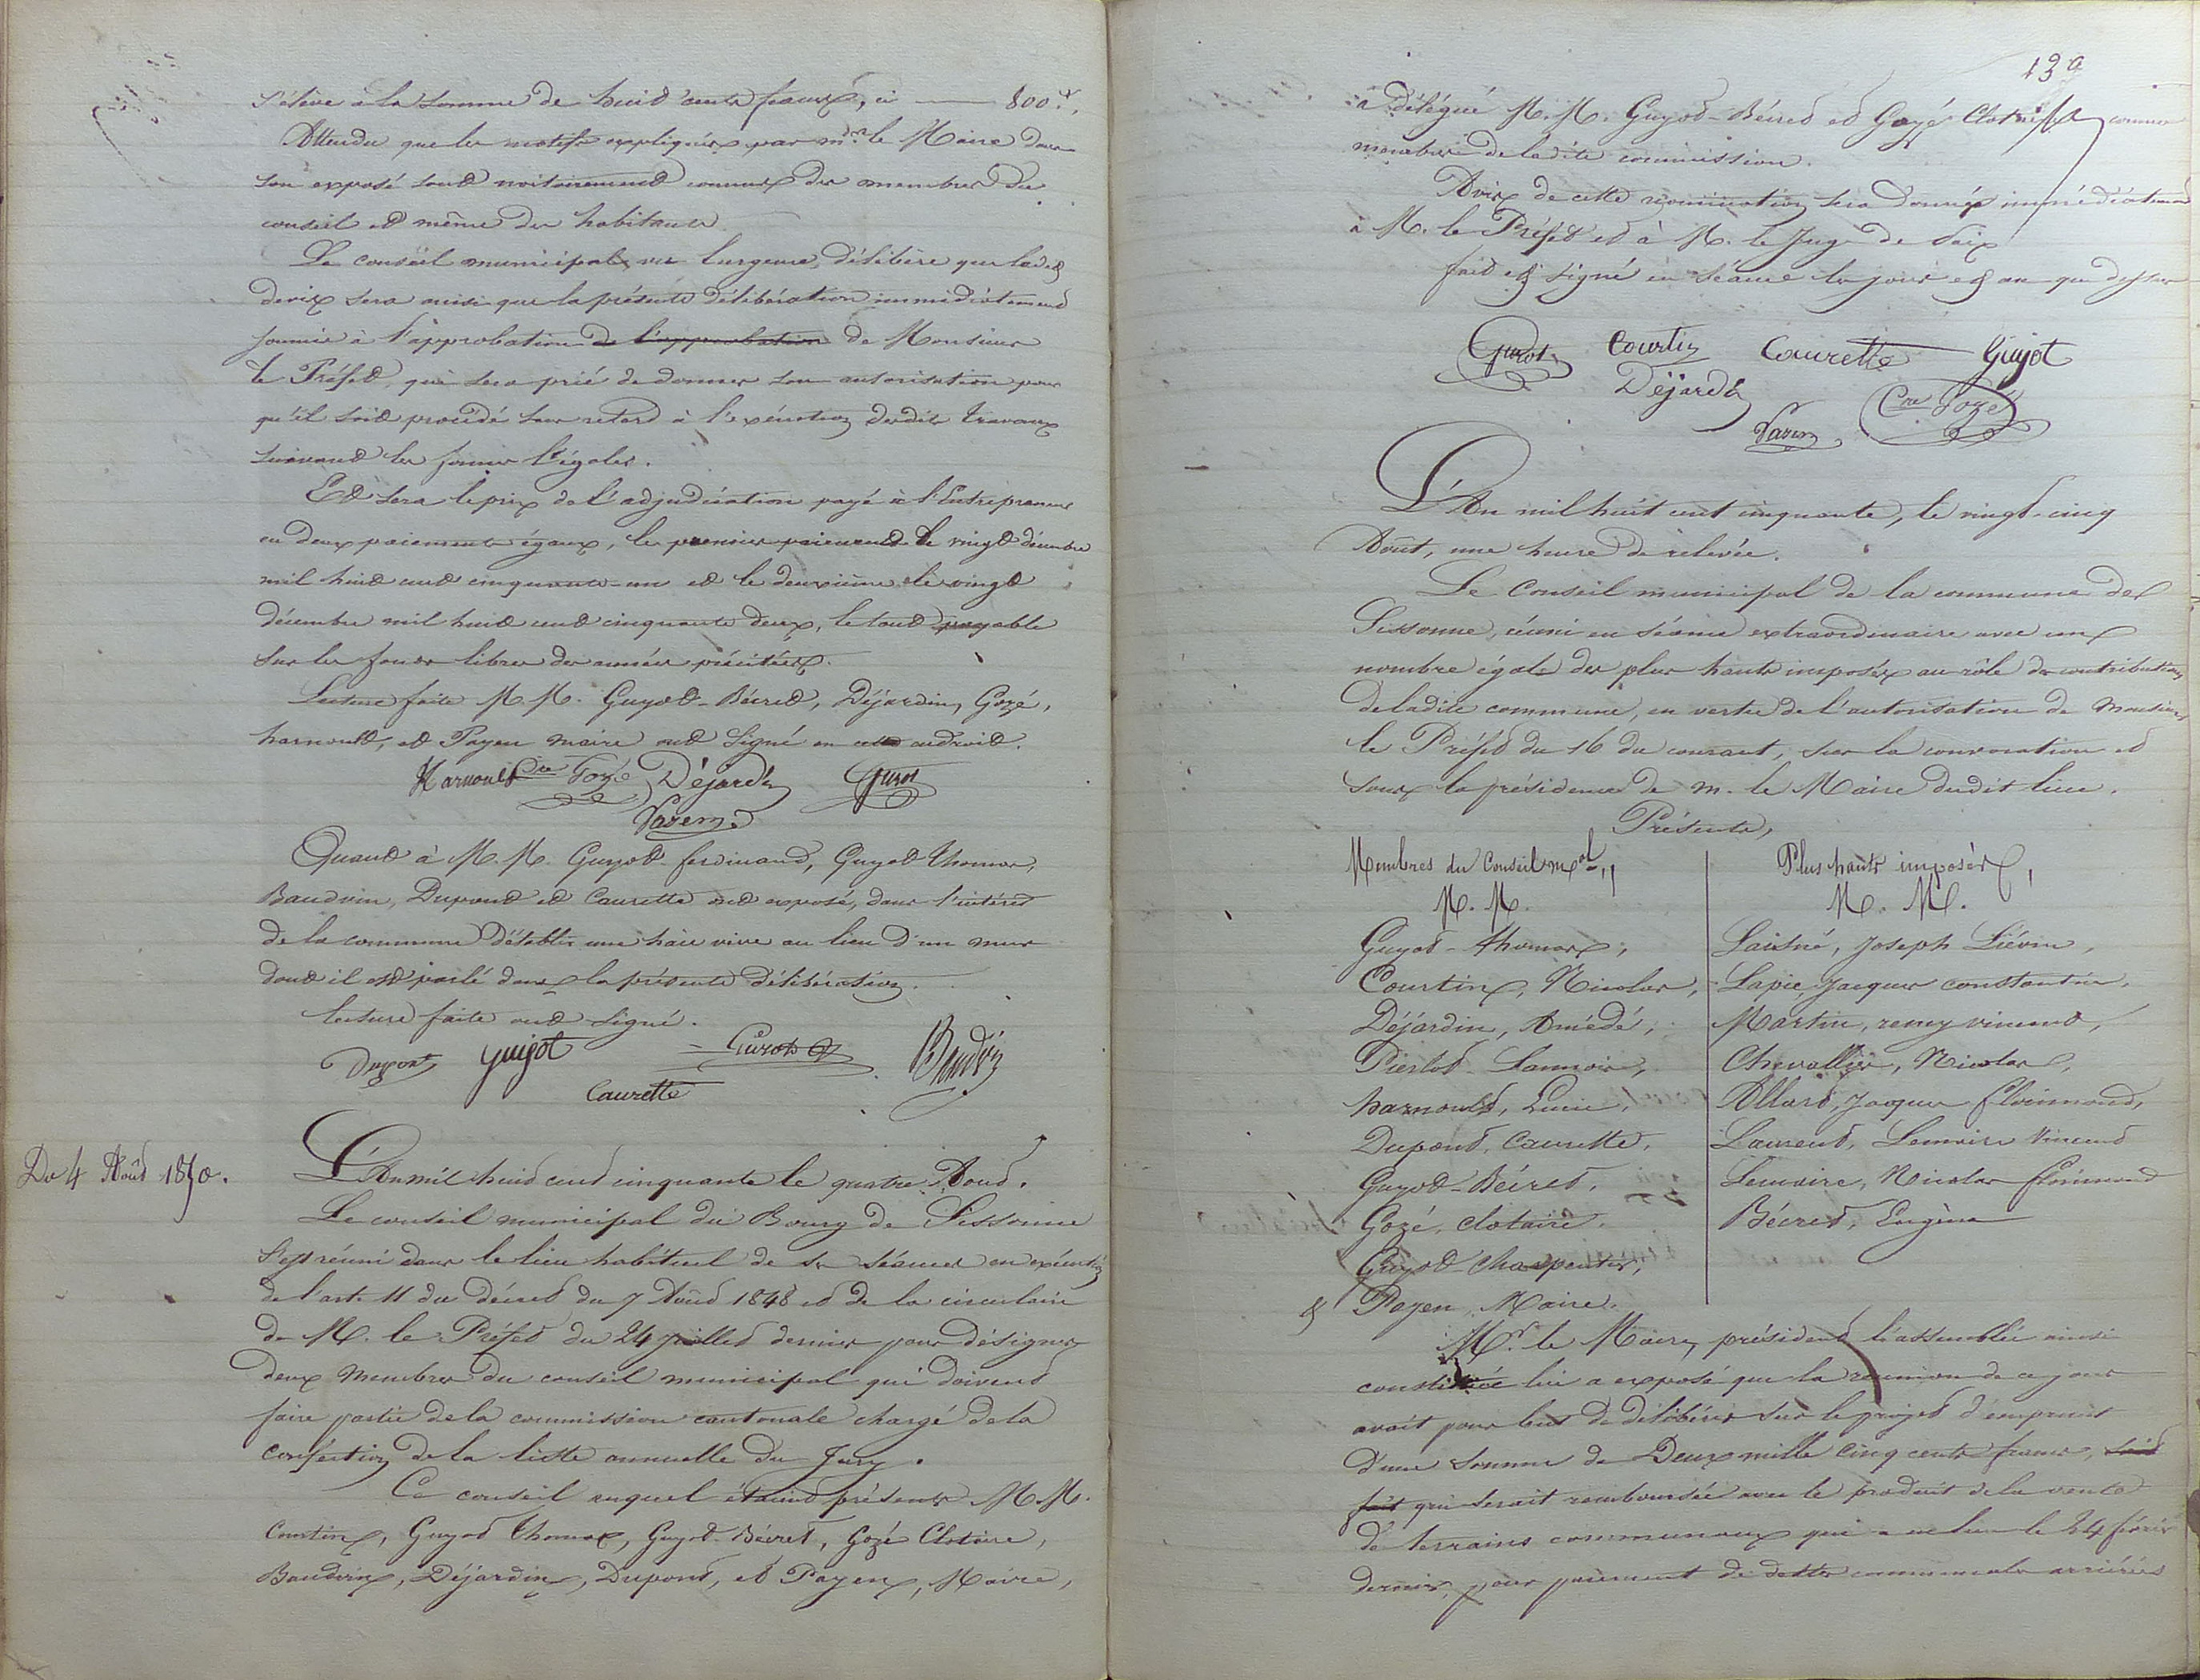 s'élève à la somme de huit cents francs, ci — 800 f,
Attendu que les motifs expliqués par mr. le Maire dans
son exposé sont notoirement connus des membres du
conseil et même des habitants.
Le conseil municipal vu l'urgence, délibère que ledit
devis sera ainsi que la présente délibération immédiatement
soumis à l'approbation de l'approbation de Monsieur
le Préfet, qui sera prié de donner son autorisation pour
qu'il soit procédé sans retard à l'exécution desdits travaux
suivant les formes légales.
Et sera le prix de l'adjudication payé à l'Entrepreneur
en deux paiements égaux, le premier paiement le vingt décembre
mil huit cent cinquante-un et le deuxième le vingt
décembre mil huit cent cinquante deux, le tout payable
sur les fonds libres des années précitées.
Lecture faite M.M. Guyot-Bécret, Déjardin, Gozé,
harnould, et Payen maire ont signé en cette endroit.
Harnould Cre Gozé Déjardin Guyot
Payen
Quant à M.M. Guyot ferdinand, Guyot thomas,
Baudoin, Dupont et Caurette ont exposé, dans l'intérêt
de la commune d'établir une haie vive au lieu d'un mur
dont il est parlé dans la présente délibération.
lecture faite ont signé.
Dupont guyot Guyot Baudoin
Caurette
Du 4 Août 1850.
L'An mil huit cent cinquante le quatre Aout.
Le conseil municipal du Bourg de Sissonne
s'est réuni dans le lieu habituel de ses séances en exécution
de l'art. 11 du décret du 7 Août 1848 et de la circulaire
de M. le Préfet du 24 juillet dernier pour désigner
deux membres du conseil municipal qui doivent
faire partie de la commission cantonale chargé de la
confection de la liste annuelle du Jury.
Ce conseil auquel étaient présents M.M.
Courtin, Guyot thomas, Guyot-Bécret, Gozé Clotaire,
Baudoin, Déjardin, Dupont, et Payen, Maire,
139
a délégué M.M. Guyot-Bécret et Gozé Clotaire comme
membres de ladite commission.
Avis de cette nomination sera donnée immédiatement
à M. le Préfet et à M. le Juge de Paix
fait et signé en séance les jour et an que dessus
Guyot Courtin Caurette Guyot
Déjardin Cre Gozé
Payen
L'An mil huit cent cinquante, le vingt-cinq
Août, une heure de relevée.
Le Conseil municipal de la commune de
Sissonne, réuni en séance extraordinaire avec un
nombre égale des plus hauts imposés au rôle des contributions
de ladite commune, en vertu de l'autorisation de Monsieur
le Préfet du 16 du courant, sur la convocation et
sous la présidence de m. le Maire dudit lieu.
Présents,
Membres du Conseil mpal,, Plus hauts imposés,
M.M. M. M.
Guyot-thomas, Laisné, Joseph Liévin,
Courtin, Nicolas, Lapie, Jacques constantin,
Déjardin, Amédé, Martin, remy vincent,
Pierlot Lannois, Chevallier, Nicolas,
harnould, Lucie, Allard, Jacques florimond,
Dupont, Caurette, Laurent, Lemoire Vincent
Guyot-Bécret, Lemoire, Nicolas florimond
Gozé, clotaire, Bécret, Eugène
Guyot-Charpentier,
& Payen, Maire.
Mr. le Maire, président l'assemblée ainsi
constituée lui a exposé que la réunion de ce jour
avait pour but de délibérer sur le projet d'emprunt
d'une somme de Deux mille cinq cents francs, soit
fait qui serait remboursée avec le produit de la vente
de terrains communaux qui a eu lieu le 24 février
dernier, pour paiement de dettes communales arriérées